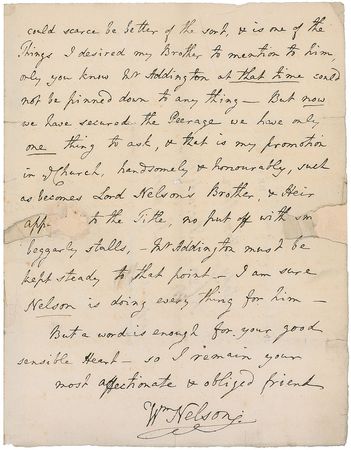 could scarce be better of the sort, & is one of the
Things I desired my Brother to mention to him,
only you know Mr Addington at that time could
not be pinned down to any thing — But now
we have secured the Peerage we have only
one thing to ask, & that is my promotion
in ye Church, handsomely & honourably, such
as becomes Lord Nelson's Brother, & Heir
app- to the Title, no put off with
beggarly stalls, - Mr Addington must be
kept steady to that point — I am sure
Nelson is doing every thing for him —
But a word is enough for your good
sensible Heart — so I remain your
most affectionate & obliged friend
Wm Nelson.